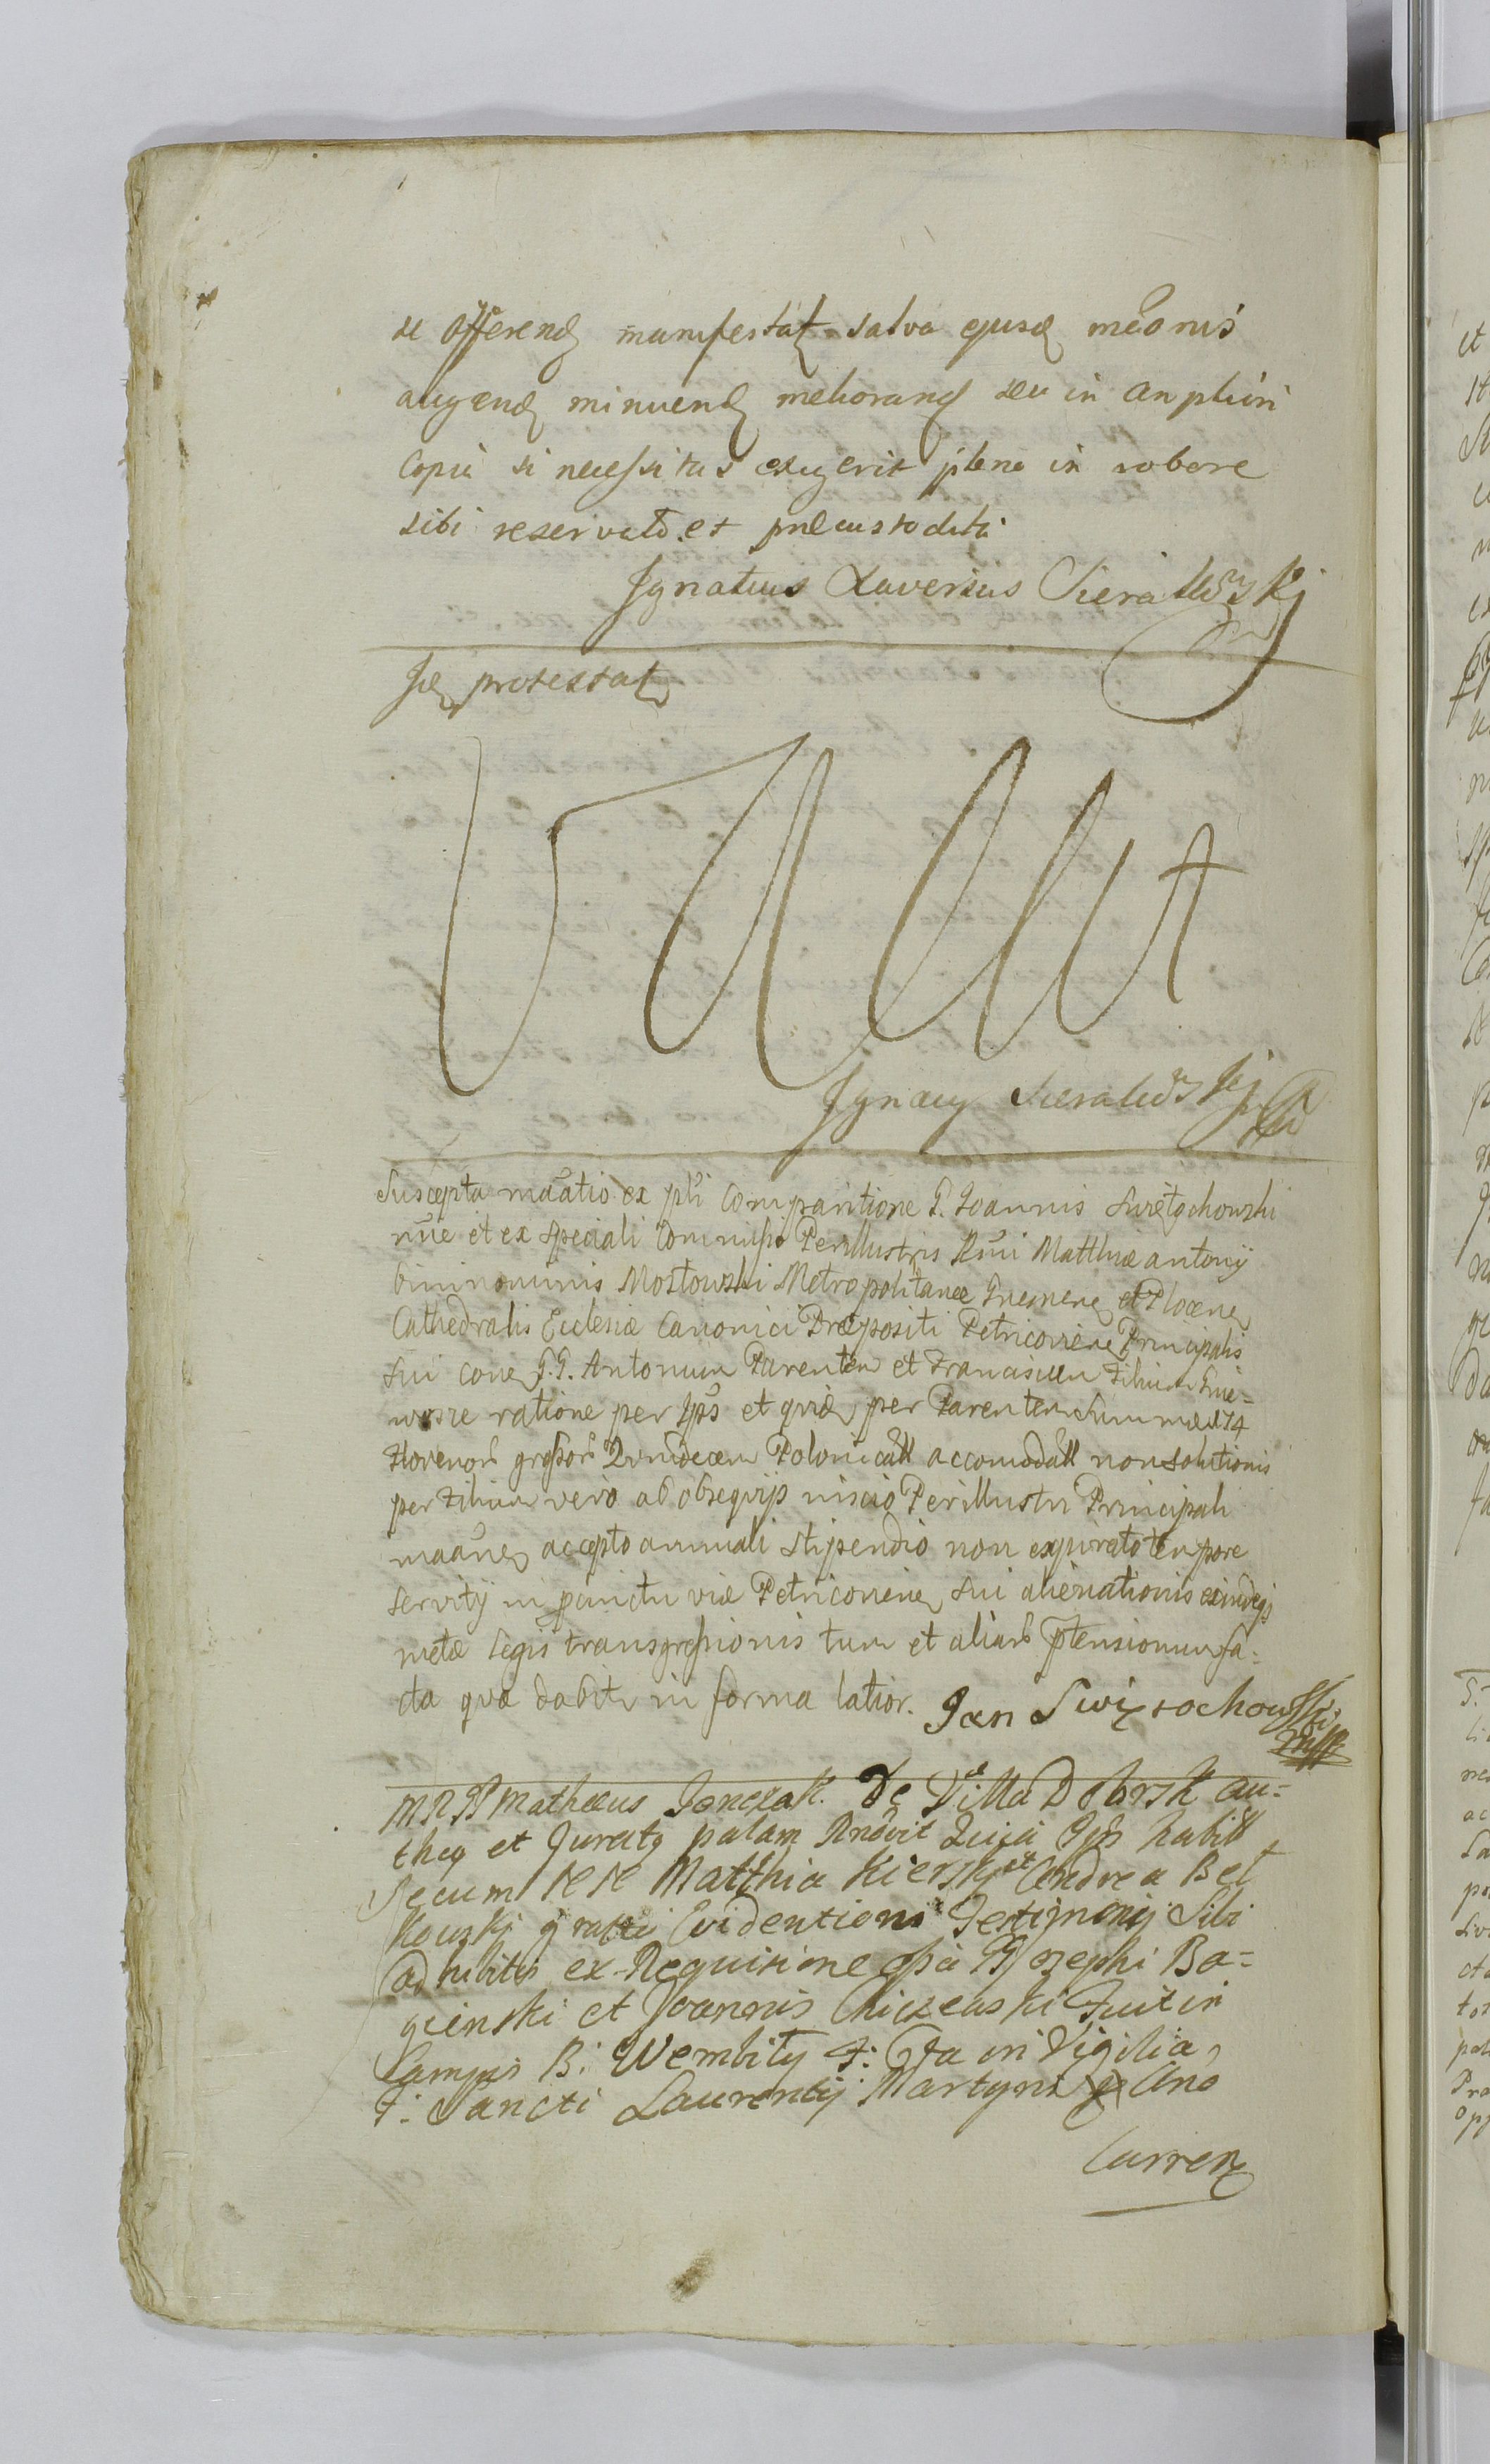 se offerend manifestat salva ejusd meonis
augend minuend meliorand seu in anpliori
Copia si necessitas exigerit plene in robore
sibi reservata et præcustodita
Ignatius Xaverius Sieraleski
Id protestat
Ignacy Sieraleski
Suscepta maatio ex pti Comparitione G. Joannis Swiętochowski
nõie et ex speciali Commissio Perillustris Rndi Matthiæ antonij
binnominis Mostowski Metropolitanæ Gnesnen et Plocen
Cathedralis Ecclesiæ Canonici Præpositi Petricovien Principalis
sui cone G.G. Antonium Parentem et Franciscum Filium Snie=
wosze ratione per Ips et quid per Parentem Summæ 74
Florenor grossor Quindecem Polonicall accomodall non solutionis
per Filium vero ab obsequijs niscio Perillustri Principali
maanen accepto annuali stipendio non expirato tempore
servitij in punctu viæ Petricovien sui alienationis exindeqs
metæ Legis transgressionis tum et aliarb ptensionum fa=
cta qva dabit in forma latior. Jan Swiętochowski
mpp
M R PP Mathæus Jonczak De Villa Dobrsk au=
theq et Juratq palam Rnovit Quia Ips habitt
Secum NN Matthia Kierski et Andrea Bel
kowskj gratti Evidentioni Testimonij Sibi
adhibitis ex Requisitione PP Josephi Ba=
gienski et Joannis Chiczewski Fuit in
Campis B: Wembity F: Qta in Vigilia
F: Sancti Laurentij Martyris Ano
Curren